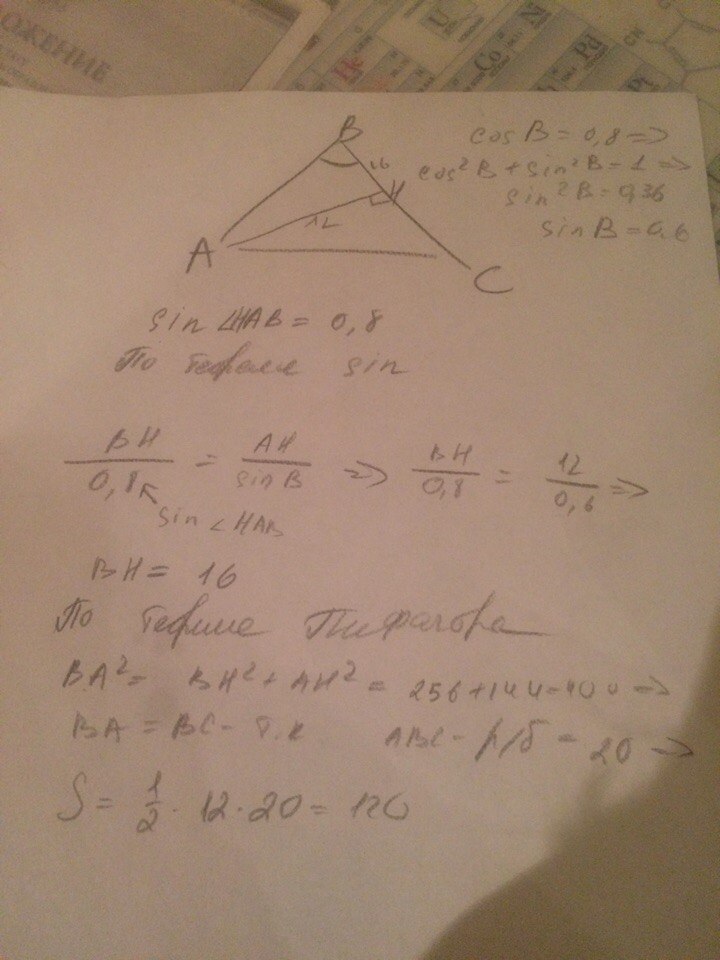 ОЖЕНИЕ
Co
N
Pd
Pt
B
16
H
12
A
C
cos B = 0,8 =>
cos²B + sin²B = 1 =>
sin²B = 0,36
sin B = 0,6
sin ∠HAB = 0,8
По теореме sin
BH/0,8 = AH/sin B => BH/0,8 = 12/0,6 =>
sin ∠HAB
BH = 16
По теореме Пифагора
BA² = BH² + AH² = 256 + 144 = 400 =>
BA = BC - т.к ABC - р/б = 20 =>
S = 1/2 · 12 · 20 = 120